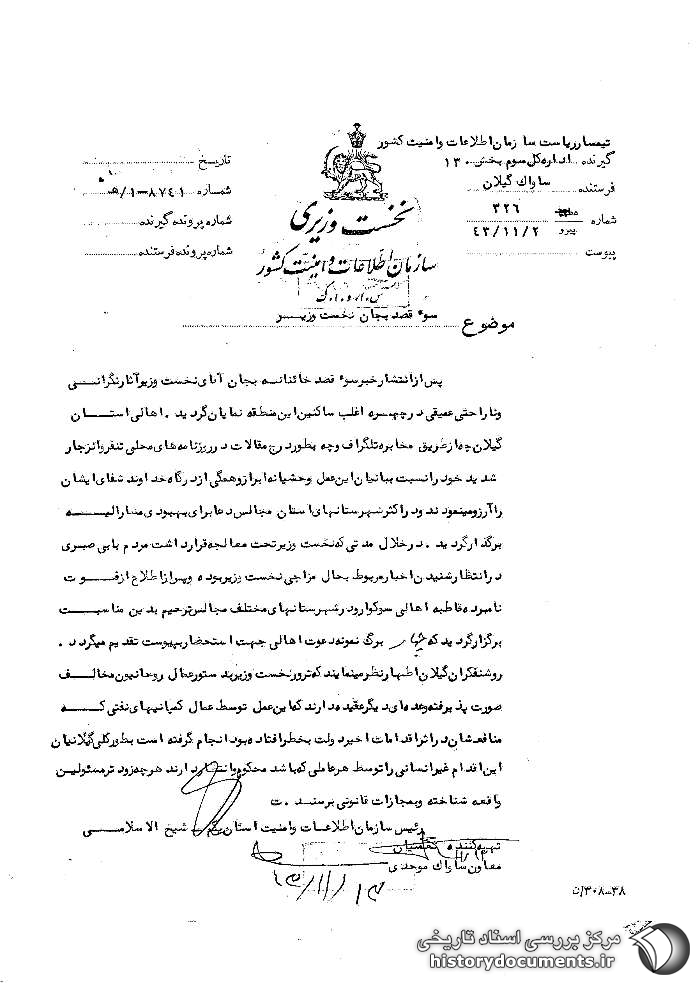 تیمسار ریاست سازمان اطلاعات و امنیت کشور
گیرنده اداره کل سوم بخش ۱۳۰
فرستنده ساواک گیلان
شماره ۳۲۶
پیرو ۴۳/۱۱/۲
پیوست
نخست وزیری
سازمان اطلاعات و امنیت کشور
س.ا.و.ا.ک
تاریخ
شماره ۸۷۴۱-۱/ه
شماره پرونده گیرنده
شماره پرونده فرستنده
موضوع سوء قصد بجان نخست وزیر
پس از انتشار خبر سوء قصد خائنانه بجان آقای نخست وزیر آثار نگرانی
و ناراحتی عمیقی در چهره اغلب ساکنین این منطقه نمایان گردید . اهالی استان
گیلان چه از طریق مخابره تلگراف و چه بطور درج مقالات در روزنامه های محلی تنفر و انزجار
شدید خود را نسبت ببانیان این عمل وحشیانه ابراز و همگی از درگاه خداوند شفای ایشان
را آرزو مینمودند و در اکثر شهرستانهای استان مجالس دعا برای بهبودی مشارالیه
برگذار گردید . در خلال مدتی که نخست وزیر تحت معالجه قرار داشت مردم با بی صبری
در انتظار شنیدن اخبار مربوط بحال مزاجی نخست وزیر بوده و پس از اطلاع از فوت
نامبرده قاطبه اهالی سوگوار و در شهرستانهای مختلف مجالس ترحیم بدین مناسبت
برگزار گردید که چهار برگ نمونه دعوت اهالی جهت استحضار بپیوست تقدیم میگردد .
روشنفکران گیلان اظهار نظر مینمایند که ترور نخست وزیر بدستور عمال روحانیون مخالف
صورت پذیرفته و عده ای دیگر عقیده دارند که این عمل توسط عمال کمپانیهای نفتی که
منافعشان در اثر اقدامات اخیر دولت بخطر افتاده بود انجام گرفته است بطور کلی گیلانیان
این اقدام غیر انسانی را توسط هر عاملی که باشد محکوم و انتظار دارند هر چه زودتر مسئولین
واقعه شناخته و بمجازات قانونی برسند . ت
رئیس سازمان اطلاعات و امنیت استان یکم - شیخ الاسلامی
تهیه کننده
معاون ساواک موحدی
۴۳/۱۱/۱۳
۳۸-۳۰۸/ت
مرکز بررسی اسناد تاریخی
historydocuments.ir